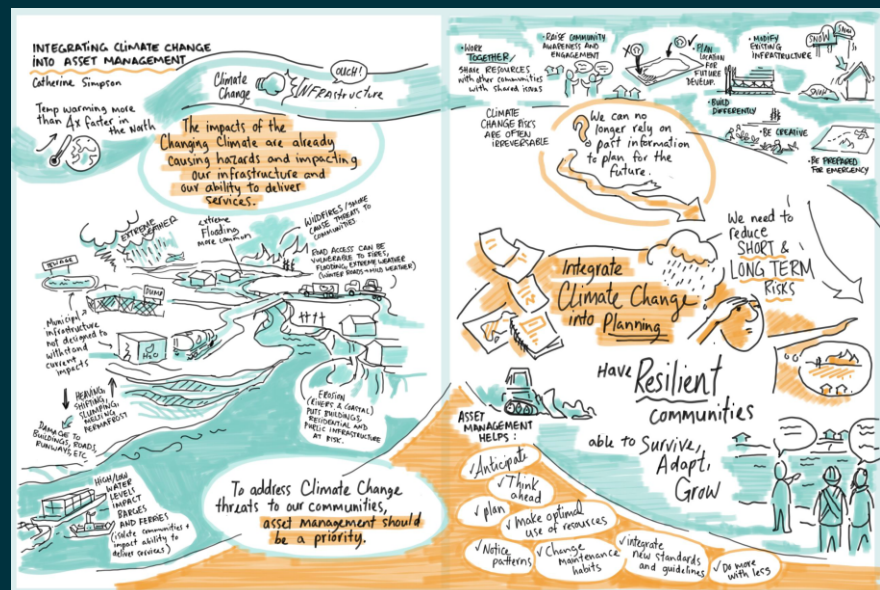 INTEGRATING CLIMATE CHANGE
INTO ASSET MANAGEMENT
Catherine Simpson
Temp warming more
than 4x faster in
the North
Climate
Change
OUCH!
INFRASTRUCTURE
The impacts of the
Changing Climate are already
causing hazards and impacting
our infrastructure and
our ability to deliver
services.
EXTREME
WEATHER
extreme
Flooding
more common
WILDFIRES/SMOKE
CAUSE THREATS TO
COMMUNITIES
ROAD ACCESS CAN BE
VULNERABLE TO FIRES,
FLOODING, EXTREME WEATHER
(WINTER ROADS → MILD WEATHER)
DUMP
Municipal
infrastructure
not designed to
withstand
current
impacts
H2O
HEAVING,
SHIFTING,
SLUMPING,
MELTING
PERMAFROST
DAMAGE TO
BUILDINGS, ROADS,
RUNWAYS, ETC
EROSION
(RIVERS & COASTAL)
PUTS BUILDINGS,
RESIDENTIAL AND
PUBLIC INFRASTRUCTURE
AT RISK.
HIGH/LOW
WATER
LEVELS
IMPACT
BARGES
AND FERRIES
(isolate communities +
impact ability to
deliver services)
To address Climate Change
threats to our communities,
asset management should
be a priority.
• WORK
TOGETHER/
SHARE RESOURCES
with other communities
with shared issues
• RAISE COMMUNITY
AWARENESS AND
ENGAGEMENT
• PLAN
LOCATION
FOR
FUTURE
DEVELOP.
• MODIFY
EXISTING
INFRASTRUCTURE
SNOW
SNOW
SNOW
• BUILD
DIFFERENTLY
• BE CREATIVE
• BE PREPARED
FOR EMERGENCY
CLIMATE
CHANGE RISKS
ARE OFTEN
IRREVERSABLE
We can no
longer rely on
past information
to plan for the
future.
We need to
reduce
SHORT &
LONG TERM
RISKS
Integrate
Climate Change
into Planning
HAVE Resilient
communities
able to Survive,
Adapt,
Grow
ASSET
MANAGEMENT
HELPS:
✓ Anticipate
✓ Think
ahead
✓ plan
✓ Make optimal
use of resources
✓ Notice
patterns
✓ Change
maintenance
habits
✓ integrate
new standards
and guidelines
✓ Do more
with less